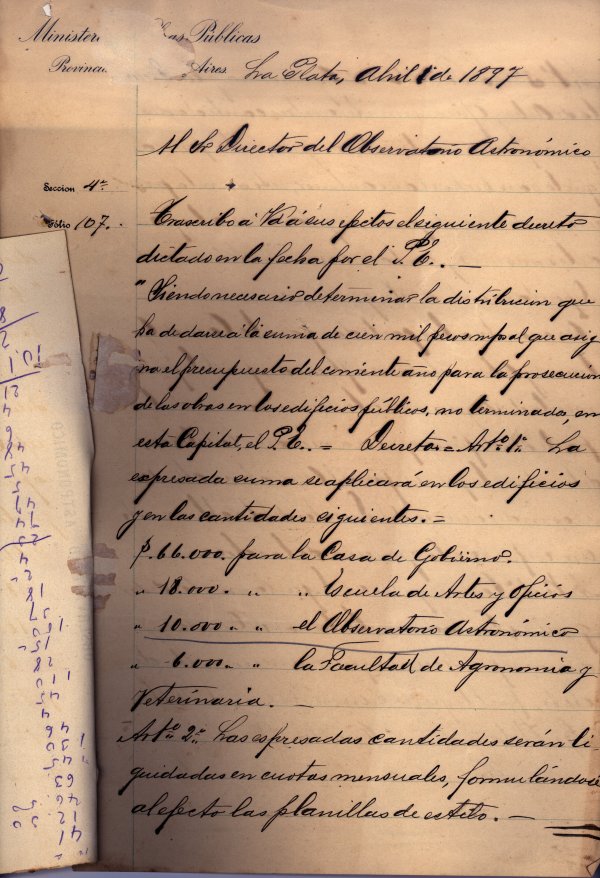 Ministerio Obras Públicas
Provincia Aires. La Plata, Abril 1 de 1897
Al Sr Director del Observatorio Astronómico
Seccion 4ª
Folio 107.
Trascribo á Vd á sus efectos el siguiente decreto
dictado en la fecha por el P. E. . —
"Siendo necesario determinar la distribucion que
ha de darse á la suma de cien mil pesos m/n al que asig
na el presupuesto del corriente año para la prosecucion
de las obras en los edificios públicos, no terminados, en
esta Capital, el P. E. . = Decreta = Artº 1º La
espresada suma se aplicará en los edificios
y en las cantidades siguientes. =
$. 66.000. para la Casa de Gobierno.
" 18.000. " " Escuela de Artes y Oficios
" 10.000. " " el Observatorio Astronómico
" 6.000. " " la Facultad de Agronomia y
Veterinaria. —
Artº 2º Las espresadas cantidades serán li-
quidadas en cuotas mensuales, formulándose
al efecto las planillas de estilo. —